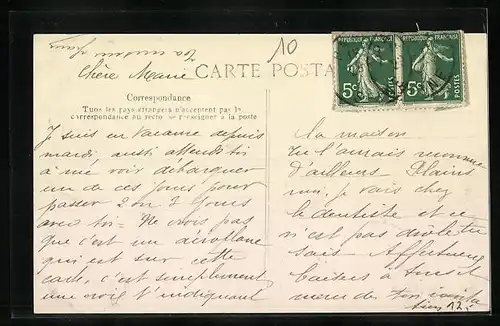 10
Chère Marie
CARTE POSTA
REPUBLIQUE FRANÇAISE
5c
REPUBLIQUE FRANÇAISE
5c
Correspondance
Tous les pays étrangers n'acceptent pas la
correspondance au recto. Se renseigner à la poste
Je suis en vacance depuis
mardi, aussi attends toi
à me voir débarquer
un de ces jours pour
passer 2 ou 3 jours
avec toi - Ne crois pas
que c'est un aéroplane
qui est sur cette
carte, c'est simplement
une croix t'indiquant
la maison
tu l'aurais reconnue
d'ailleurs Plains
moi, je vais chez
le dentiste et ce
n'est pas drôle tu
sais
Baisers à tous et
merci de ton
12